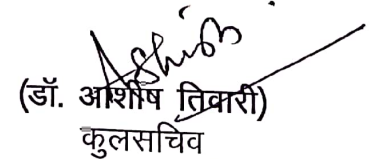 Ashish
(डॉ. आशीष तिवारी)
कुलसचिव